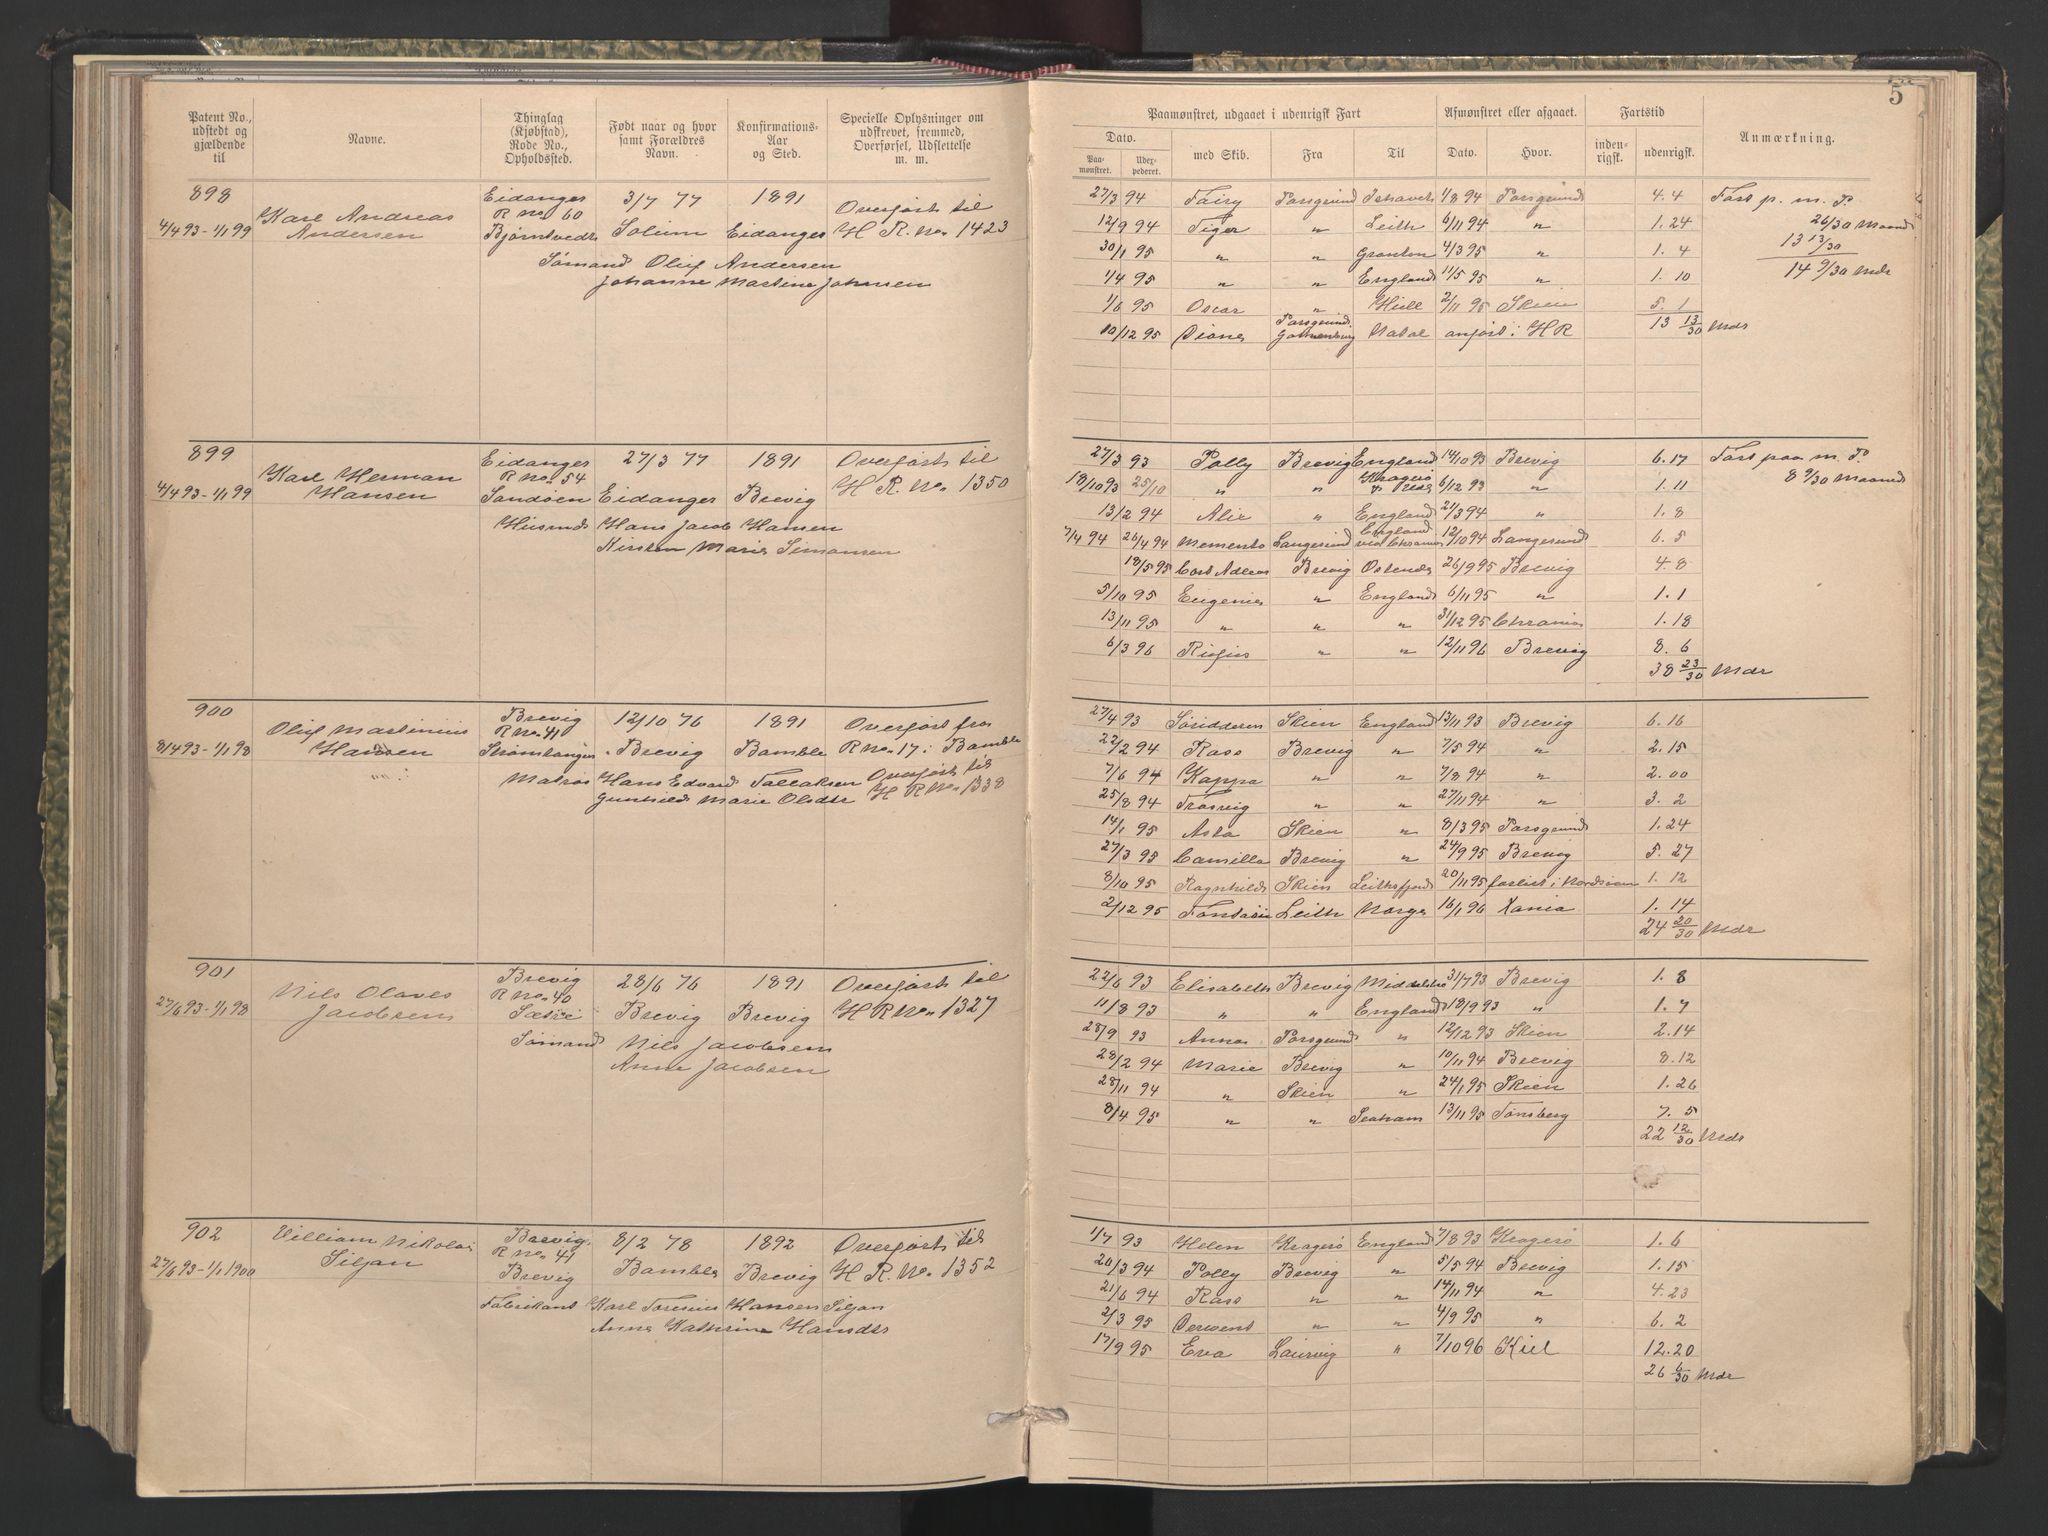 Patent No.,
udstedt og
gjældende
til
Navne.
Thinglag
(Kjøbstad),
Rode No.,
Opholdssted.
Født naar og hvor
samt Forældres
Navn.
Konfirmations-
Aar
og Sted.
Specielle Oplysninger om
udskrevet, fremmed,
Overførsel, Udslettelse
m. m.
898
4/4 93 - 1/1 99
Karl Andreas
Andersen
Eidanger
R No. 60
Bjørntvedt
3/7 77
Solum
1891
Eidanger
Overført til
H R. No. 1423
Sømand Oluf Andersen
Johanne Martine Johnsen
899
4/4 93 - 1/1 99
Karl Herman
Hansen
Eidanger
R No. 54
Sandøen
27/3 77
Eidanger
1891
Brevig
Overført til
H R. No. 1350
Husmd Hans Jacob Hansen
Kirsten Marie Simonsen
900
8/4 93 - 1/1 98
Oluf Martinius
Hansen
Brevig
R No. 41
Strømtangen
12/10 76
Brevig
1891
Bamble
Overført fra
R No. 17 i Bamble
Overført til
H R No. 1338
Matros Hans Edvard Tollaksen
Gunhild Marie Olsdtr
901
27/6 93 - 1/1 98
Nils Olaves
Jacobsen
Brevig
R No. 40
Sætre
28/6 76
Brevig
1891
Brevig
Overført til
H R No. 1327
Sømand Nils Jacobsen
Anne Jacobsen
902
27/6 93 - 1/1 1900
Villiam Nikolai
Siljan
Brevig
R No. 41
Brevig
8/2 78
Bamble
1892
Brevig
Overført til
H R. No. 1352
Fabrikant Karl Toresius Hansen Siljan
Anne Kathrine Hansdtr
5
Paamønstret, udgaaet i udenrigsk Fart
Afmønstret eller afgaaet.
Fartstid
Anmærkning.
Dato.
Paa-
mønstret.
Udex-
pederet.
med Skib.
Fra
Til
Dato.
Hvor.
inden-
rigsk.
udenrigsk.
27/3 94 Fairy Porsgrund Ishavet 1/8 94 Porsgrund 4. 4 Fart p. m. P.
12/9 94 Tiger " Leith 6/11 94 " 1. 24 26/30 Maaned
30/1 95 " " Granton 4/3 95 " 1. 4 13 13/30
1/4 95 " " England 11/5 95 " 1. 10 14 9/30 Mdr
1/6 95 Oscar " Hull 2/11 95 Skien 5. 1
10/12 95 Diana Porsgrund Gothenborg Natal anført i H R 13 13/30 Mdr
27/3 93 Polly Brevig England 14/10 93 Brevig 6. 17 Fart paa m. P.
18/10 93 25/10 " " Kragerø 6/12 93 " 1. 11 8 9/30 Maaned
13/2 94 Alie " England 21/3 94 " 1. 8
7/4 94 26/4 94 Memento Langesund England via Chrania 12/10 94 Langesund 6. 5
18/5 95 Cort Adeler Brevig Ostende 26/9 95 Brevig 4. 8
5/10 95 Eugenie " England 6/11 95 " 1. 1
13/11 95 " " " 31/12 95 Chrania 1. 18
6/3 96 Rufus " " 12/11 96 Brevig 8. 6
38 23/30 Mdr
27/4 93 Søridderen Skien England 13/11 93 Brevig 6. 16
22/2 94 Ross Brevig " 7/5 94 " 2. 15
7/6 94 Kappa " " 7/8 94 " 2. 00
25/8 94 Frosvig " " 27/11 94 " 3. 2
14/1 95 Asta Skien " 8/3 95 Porsgrund 1. 24
27/3 95 Camilla Brevig " 24/9 95 Brevig 5. 27
8/10 95 Ragnhild Skien Leithsfjord 20/11 95 forlist i Nordsøen 1. 12
2/12 95 Fantasie Leith Norge 16/1 96 Xania 1. 14
24 20/30 Mdr
22/6 93 Elisabeth Brevig Middelsbro 31/7 93 Brevig 1. 8
11/8 93 " " England 18/9 93 " 1. 7
28/9 93 Anna Porsgrund " 12/12 93 Skien 2. 14
28/2 94 Marie Brevig " 10/11 94 Brevig 8. 12
28/11 94 " Skien " 24/1 95 Skien 1. 26
8/4 95 " " Seaham 13/11 95 Tønsberg 7. 5
22 12/30 Mdr
1/7 93 Helen Kragerø England 7/8 93 Kragerø 1. 6
20/3 94 Polly Brevig " 5/5 94 Brevig 1. 15
21/6 94 Ross " " 14/11 94 " 4. 23
2/3 95 Derwent " " 4/9 95 " 6. 2
17/9 95 Eva Laurvig " 7/10 96 Kiel 12. 20
26 6/30 Mdr